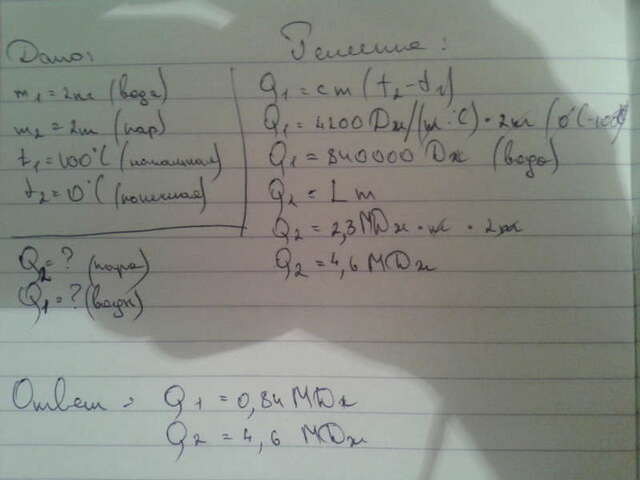 Дано:
m₁ = 2кг (вода)
m₂ = 2т (пар)
t₁ = 100°C (начальная)
t₂ = 0°C (конечная)
Q₂ = ? (пара)
Q₁ = ? (воды)
Решение:
Q₁ = cm (t₂ - t₁)
Q₁ = 4200 Дж/(кг·°C) · 2кг (0°C-100°)
Q₁ = 840000 Дж (вода)
Q₂ = Lm
Q₂ = 2,3 МДж · кг · 2кг
Q₂ = 4,6 МДж
Ответ: Q₁ = 0,84 МДж
Q₂ = 4,6 МДж